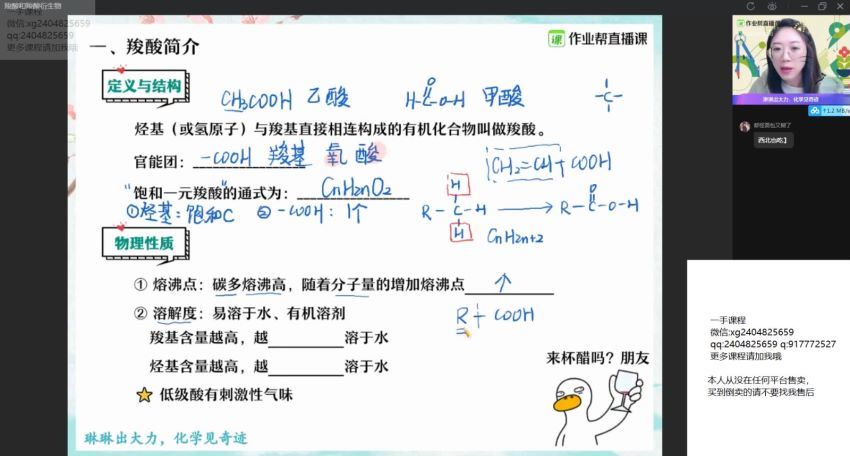 羧酸和羧酸衍生物
一手课程
微信:xg2404825659
qq:2404825659
更多课程请加我哦
一、羧酸简介
课 作业帮直播课
定义与结构
CH3COOH 乙酸
O
H-C-O-H 甲酸
-C-
烃基（或氢原子）与羧基直接相连构成的有机化合物叫做羧酸。
官能团：-COOH 羧基 氧 酸
CH2=CH+COOH
"饱和一元羧酸"的通式为：CnH2nO2
①烃基：饱和C ②-COOH：1个
H
R-C-H
H
O
R-C-O-H
CnH2n+2
物理性质
① 熔沸点：碳多熔沸高，随着分子量的增加熔沸点 ↑
② 溶解度：易溶于水、有机溶剂
R+COOH
羧基含量越高，越________溶于水
烃基含量越高，越________溶于水
低级酸有刺激性气味
来杯醋吗？朋友
琳琳出大力，化学见奇迹
琳琳出大力，化学见奇迹
1.2 MB/s
西北出吃】
一手课程
微信:xg2404825659
qq:2404825659 q:917772527
更多课程请加我哦
本人从没在任何平台售卖，
买到倒卖的请不要找我售后